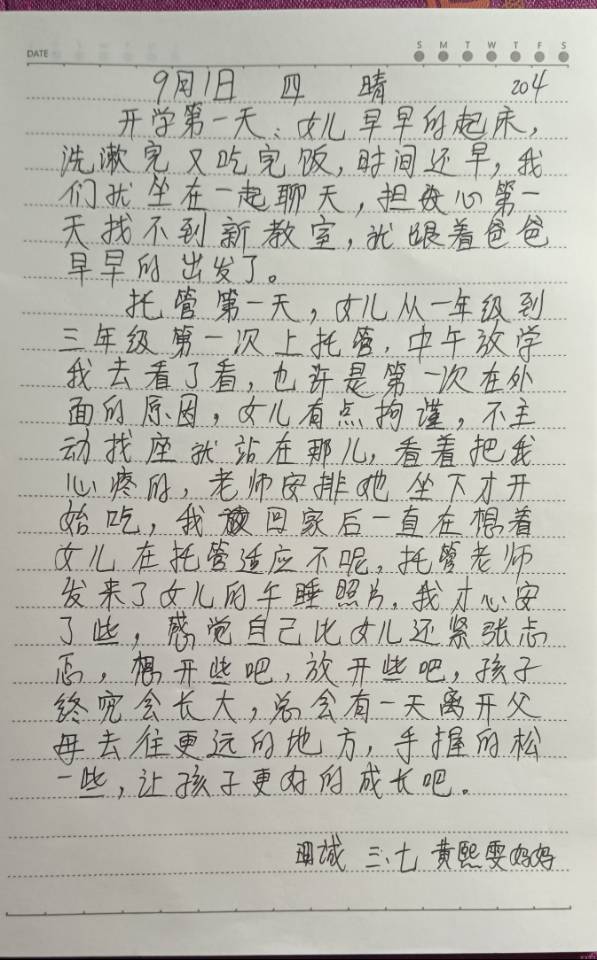 DATE
S M T W T F S
9月1日 四 晴 204
开学第一天、女儿早早的起床，
洗漱完又吃完饭，时间还早，我
们就坐在一起聊天，担心第一
天找不到新教室，就跟着爸爸
早早的出发了。
托管第一天，女儿从一年级到
三年级第一次上托管，中午放学
我去看了看，也许是第一次在外
面的原因，女儿有点拘谨，不主
动找座就站在那儿，看着把我
心疼的，老师安排她坐下才开
始吃，我回家后一直在想着
女儿在托管适应不呢，托管老师
发来了女儿的午睡照片，我才心安
了些，感觉自己比女儿还紧张忐
忑，想开些吧，放开些吧，孩子
终究会长大，总会有一天离开父
母去往更远的地方，手握的松
一些，让孩子更好的成长吧。
三、七 黄熙雯妈妈